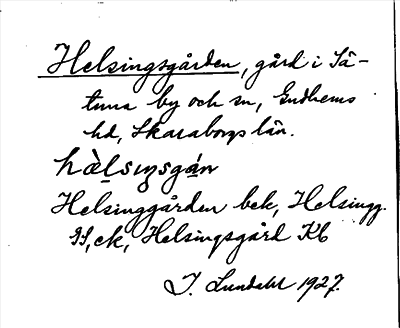 Helsingsgården, gård i Sä-
tuna by och sn, Gudhems
hd, Skaraborgs län.
hàlsıŋsgán
Helsinggården bek, Helsingg.
GS, ek, Helsingsgård Kb
I. Lundahl 1927.